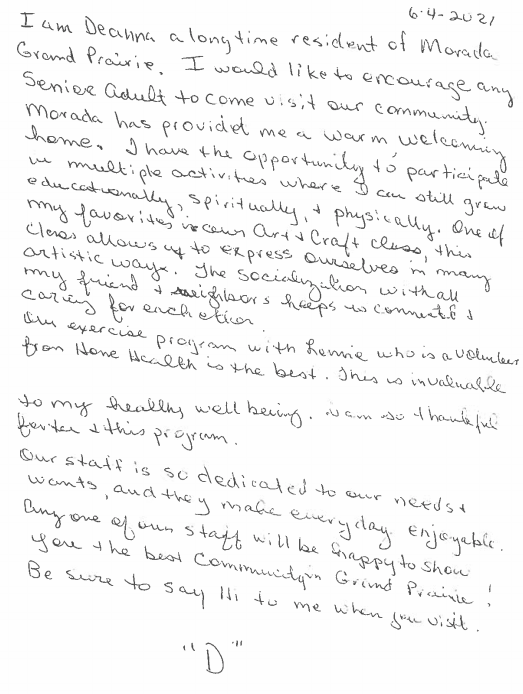 6-4-2021
I am Deanna a longtime resident of Morada
Grand Prairie. I would like to encourage any
Senior Adult to come visit our community.
Morada has provided me a warm welcoming
home. I have the opportunity to participate
in multiple activities where I can still grow
educationally, spiritually, + physically. One of
my favorites is our Art + Craft class, this
class allows us to express ourselves in many
artistic ways. The socialization with all
my friend + neighbors keeps us connected +
caring for each other.
Our exercise program with Lennie who is a volunteer
from Home Health is the best. This is invaluable
to my healthy well being. I am so thankful
for her + this program.
Our staff is so dedicated to our needs +
wants, and they make everyday enjoyable.
Any one of our staff will be happy to show
you the best Community in Grand Prairie!
Be sure to say Hi to me when you visit.
"D"